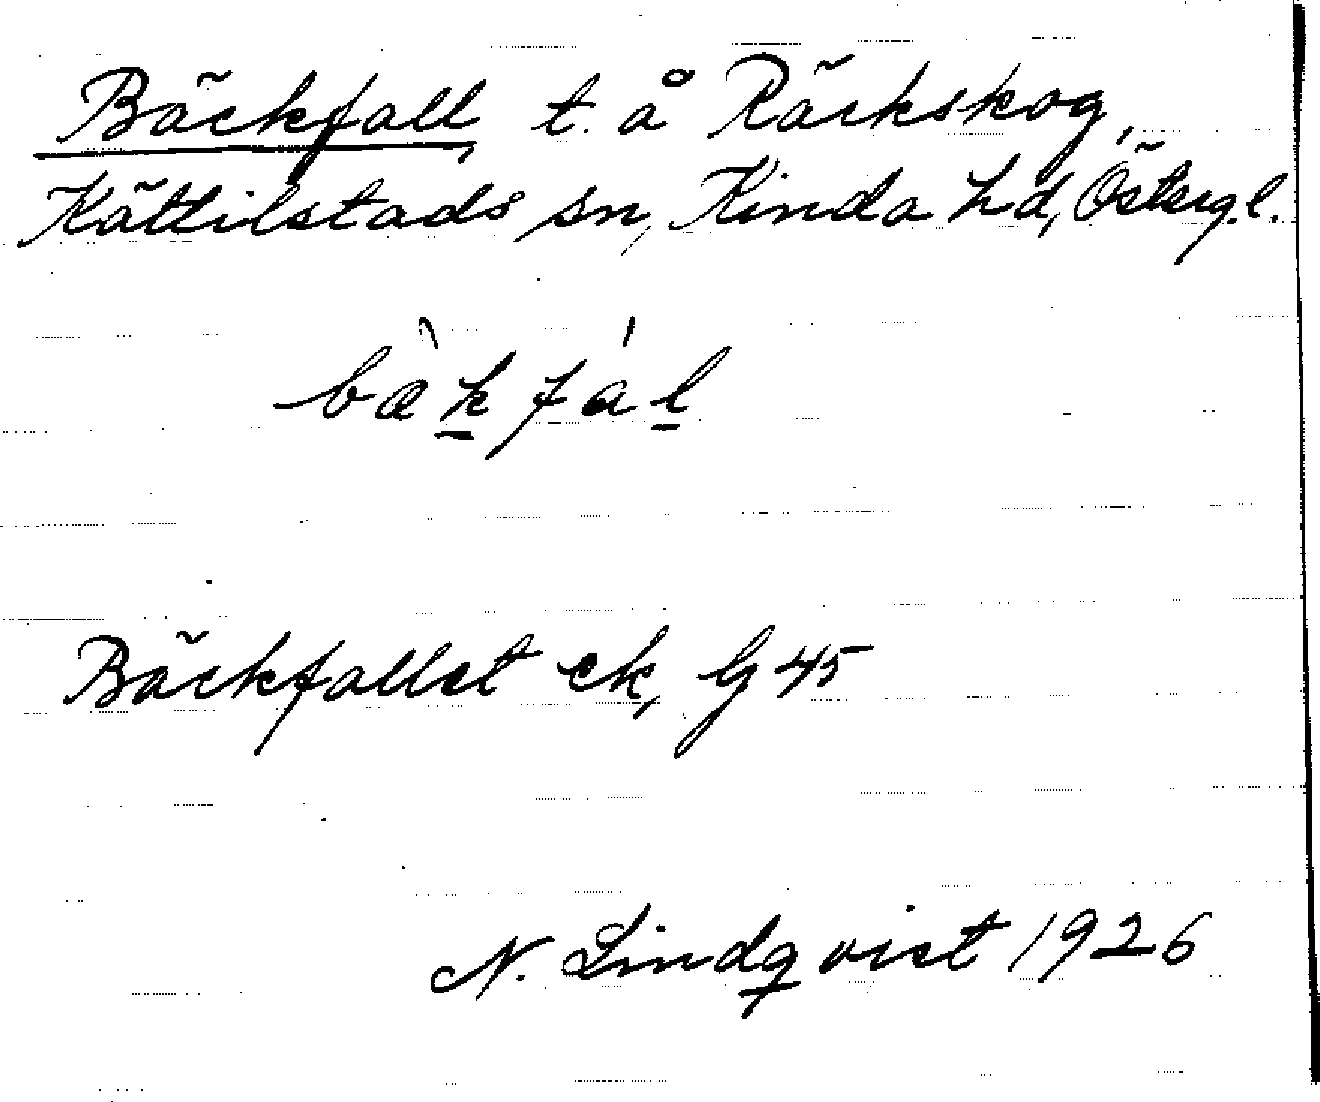 Bäckfall, t. å Räckskog,
Kättilstads sn, Kinda hd, Östergl.
bæ̀k̲fál̲
Bäckfallet ek, Lj 45
N. Lindqvist 1926